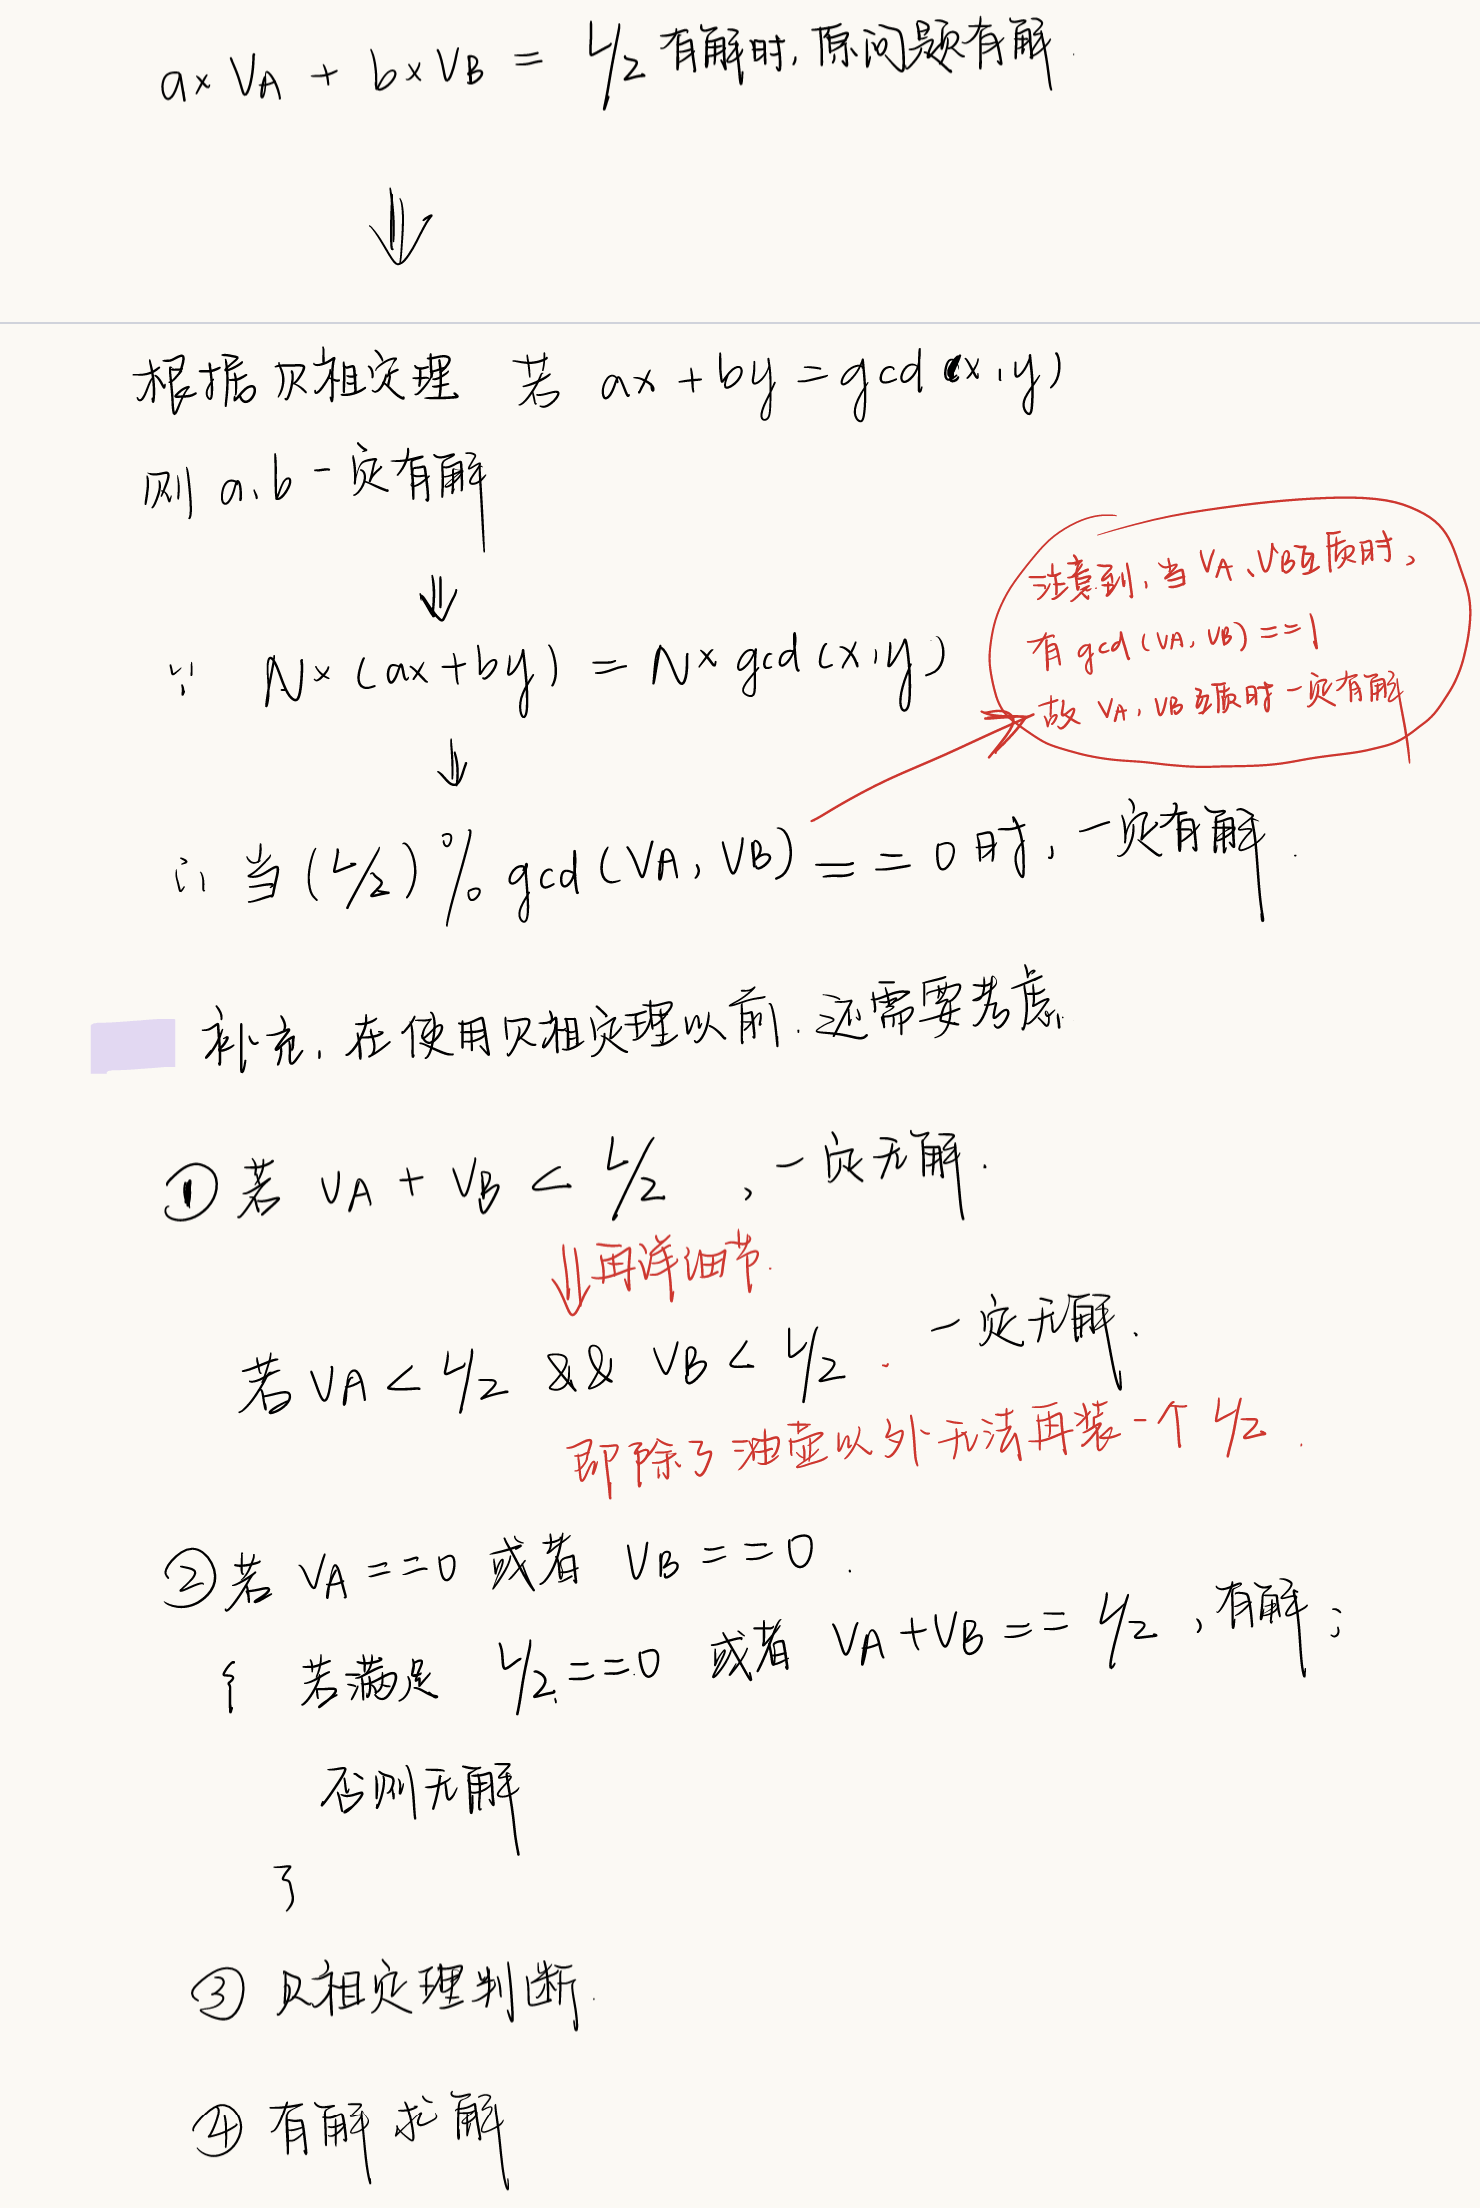 a× VA + b×VB = L/2 有解时, 原问题有解.
根据贝祖定理 若 ax + by = gcd(x,y)
则 a、b 一定有解
∵ N×(ax+by) = N×gcd(x,y)
注意到, 当 VA、VB互质时,
有 gcd(VA, VB) ==1
故 VA, VB 互质时一定有解
∴ 当 (L/2) % gcd(VA, VB) == 0 时, 一定有解.
补充, 在使用贝祖定理以前, 还需要考虑.
① 若 VA + VB < L/2 , 一定无解.
再详细节.
若 VA < L/2 && VB < L/2 . 一定无解.
即除了油壶以外无法再装一个 L/2 .
② 若 VA ==0 或者 VB ==0 .
{ 若满足 L/2 ==0 或者 VA+VB == L/2 , 有解;
否则无解
}
③ 贝祖定理判断.
④ 有解求解